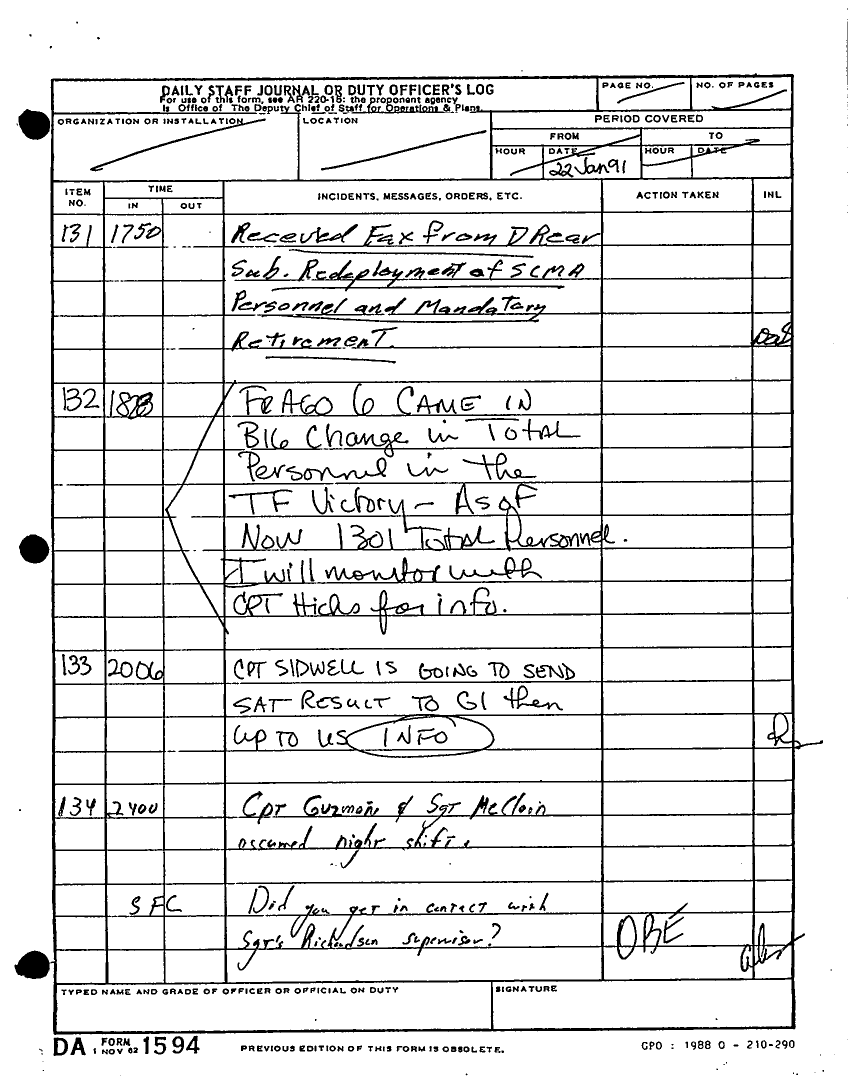 DAILY STAFF JOURNAL OR DUTY OFFICER'S LOG
For use of this form, see AR 220-15: the proponent agency
is Office of The Deputy Chief of Staff for Operations & Plans.
PAGE NO.
NO. OF PAGES
ORGANIZATION OR INSTALLATION
LOCATION
PERIOD COVERED
FROM
TO
HOUR
DATE
HOUR
DATE
22 Jan 91
ITEM NO.
TIME
IN
OUT
INCIDENTS, MESSAGES, ORDERS, ETC.
ACTION TAKEN
INL
131 1750 Received Fax from D Rear
Sub. Redeployment of SCMA
Personnel and Mandatory
Retirement.
132 FRAGO 6 CAME IN
BIG Change in Total
Personnel in the
TF Victory - As of
Now 1301 Total Personnel.
I will monitor with
CPT Hicks for info.
133 2006 CPT SIDWELL IS GOING TO SEND
SAT RESULT TO G1 then
UP TO US INFO
134 2400 Cpt Guzman & Sgt McClain
assumed night shift.
SFC Did you get in contact with
Sgt's Richardson supervisor? OBE
TYPED NAME AND GRADE OF OFFICER OR OFFICIAL ON DUTY
SIGNATURE
DA FORM 1 NOV 62 1594
PREVIOUS EDITION OF THIS FORM IS OBSOLETE.
GPO : 1988 O - 210-290